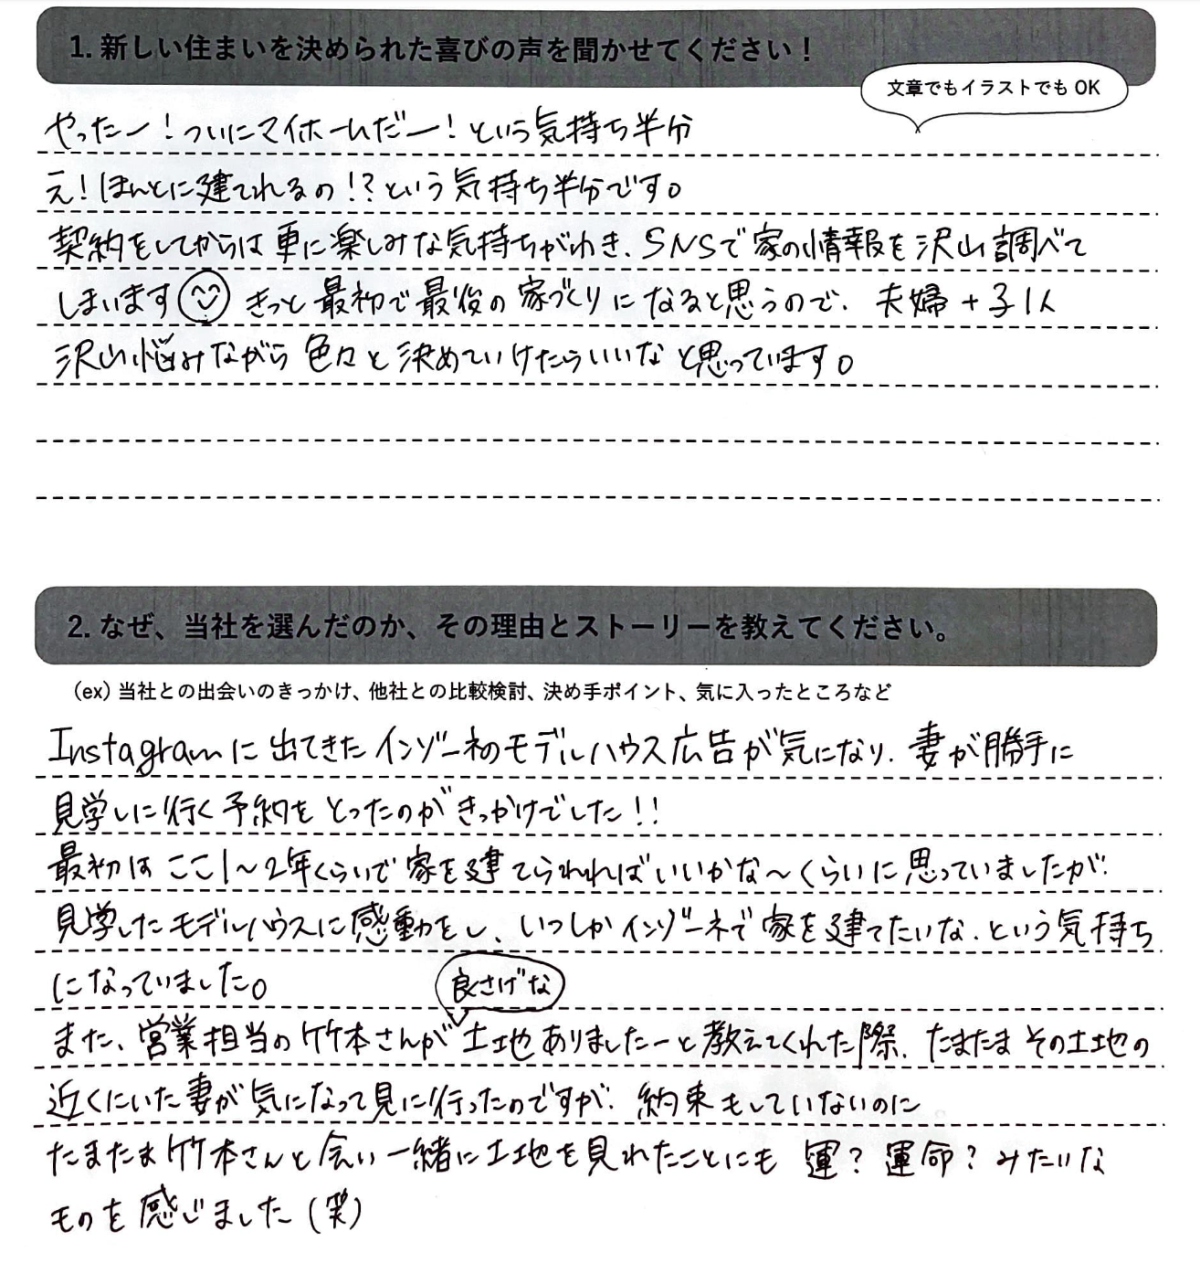 1. 新しい住まいを決められた喜びの声を聞かせてください！
文章でもイラストでもOK
やったー！ついにマイホームだー！という気持ち半分
え！ほんとに建てれるの！？という気持ち半分です。
契約をしてからは更に楽しみな気持ちがわき、SNSで家の情報を沢山調べて
しまいます きっと最初で最後の家づくりになると思うので、夫婦+子1人
沢山悩みながら色々と決めていけたらいいなと思っています。
2. なぜ、当社を選んだのか、その理由とストーリーを教えてください。
（ex）当社との出会いのきっかけ、他社との比較検討、決め手ポイント、気に入ったところなど
Instagramに出てきたインゾーネのモデルハウス広告が気になり、妻が勝手に
見学しに行く予約をとったのがきっかけでした！！
最初はここ1〜2年くらいで家を建てられればいいかな〜くらいに思っていましたが、
見学したモデルハウスに感動をし、いつしかインゾーネで家を建てたいな、という気持ち
になっていました。
良さげな
また、営業担当の竹本さんが土地ありましたーと教えてくれた際、たまたまその土地の
近くにいた妻が気になって見に行ったのですが、約束もしていないのに
たまたま竹本さんと会い一緒に土地を見れたことにも運？運命？みたいな
ものを感じました（笑）